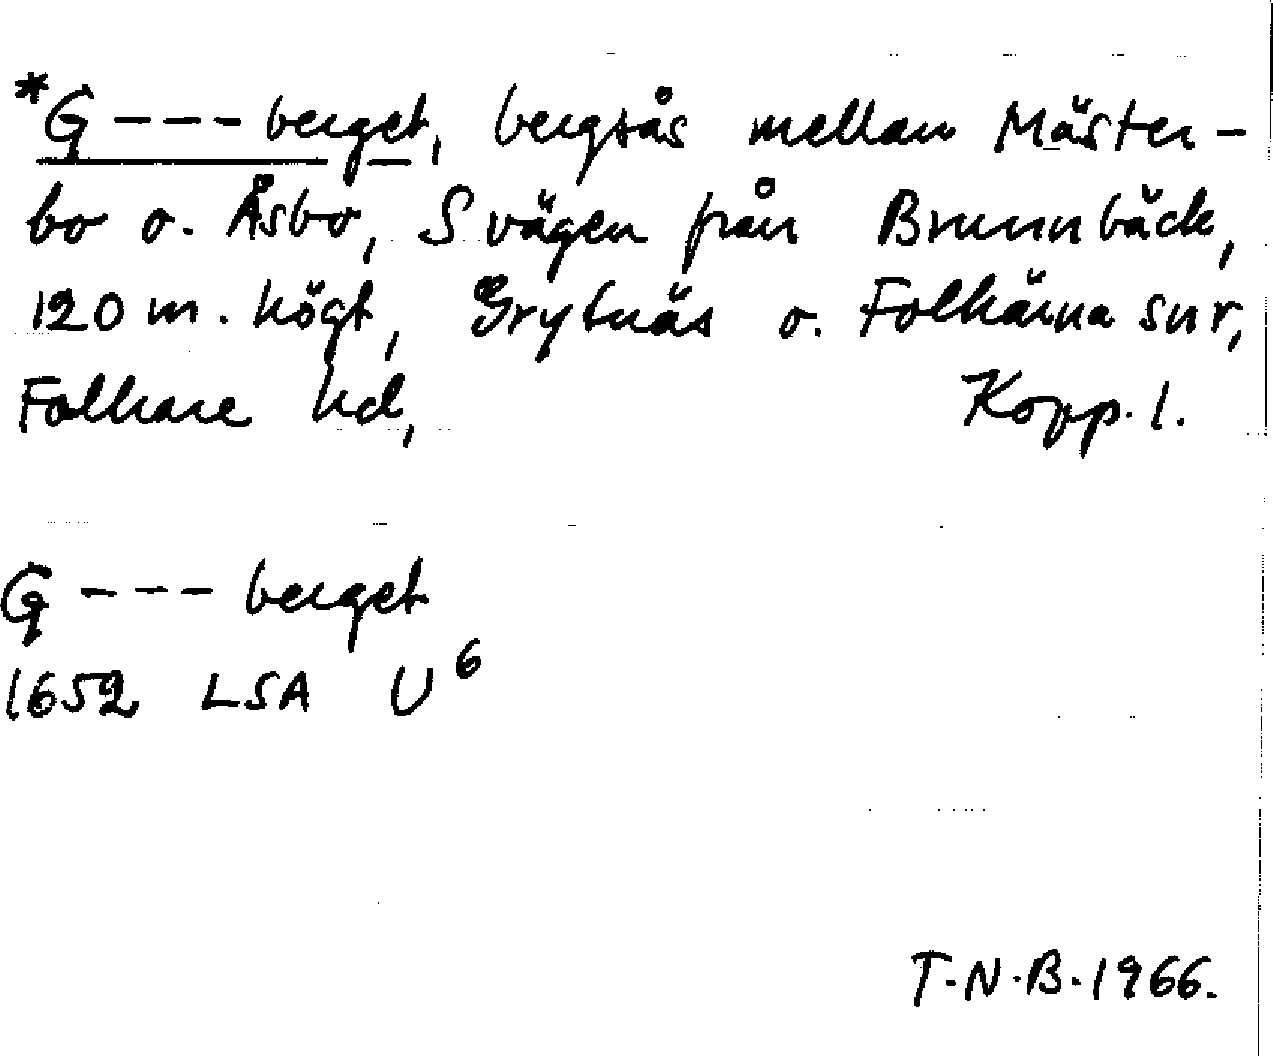 *G - - - berget, bergsås mellan Mäster-
bo o. Åsbo, S vägen från Brunnbäck,
120 m. högt, Grytnäs o. Folkärna snr,
Folkare hd, Kopp. l.
G - - - berget
1652 LSA U⁶
T.N.B. 1966.